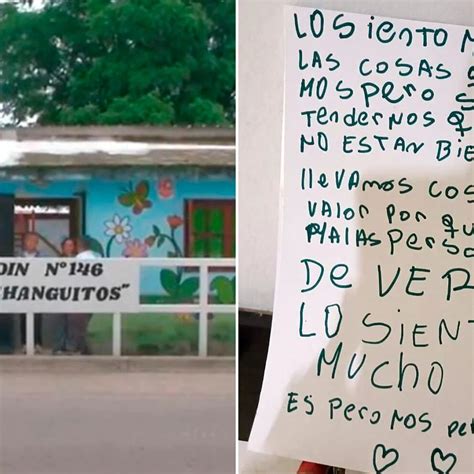 DIN Nº 146
HANGUITOS"
LO SIENTO M
LAS COSAS
MOS PERO
TENDERNOS Q
NO ESTAN BIE
LLEVAMOS COS
VALOR POR QU
PERSO
DE VER
LO SIEN
MUCHO
ESPERO NOS PE